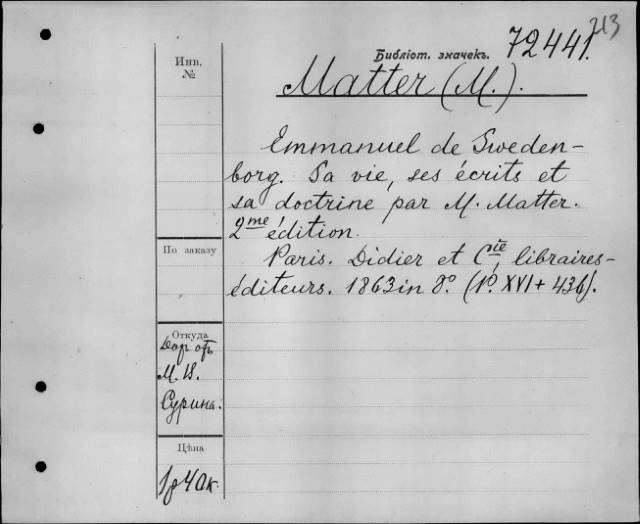 713
Библіот. значекъ. 72441.
Инв.
№
Matter (M.).
Emmanuel de Sweden-
borg. Sa vie, ses écrits et
sa doctrine par M. Matter.
2me édition.
Paris. Didier et Cie, libraires-
éditeurs. 1863 in 8°. (P. XVI + 436).
По заказу
Откуда
Даръ отъ
М.
Сурина.
Цѣна
1р 40к.